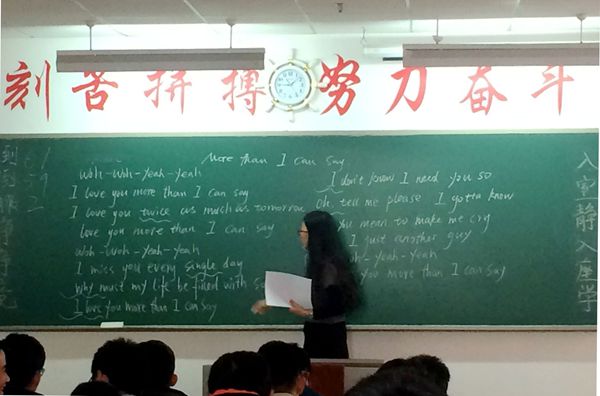 刻苦拼搏 努力奋斗
More than I can say
Woh-Woh-Yeah-Yeah
I love you more than I can say
I love you twice as much as tomorrow
love you more than I can say
Woh-Woh-Yeah-Yeah
I miss you every single day
Why must my life be filled with
I love you more than I can say
I don't know I need you so
Oh, tell me please I gotta know
you mean to make me cry
I just another guy
-Yeah-Yeah
you more than I can say
入室静入座学